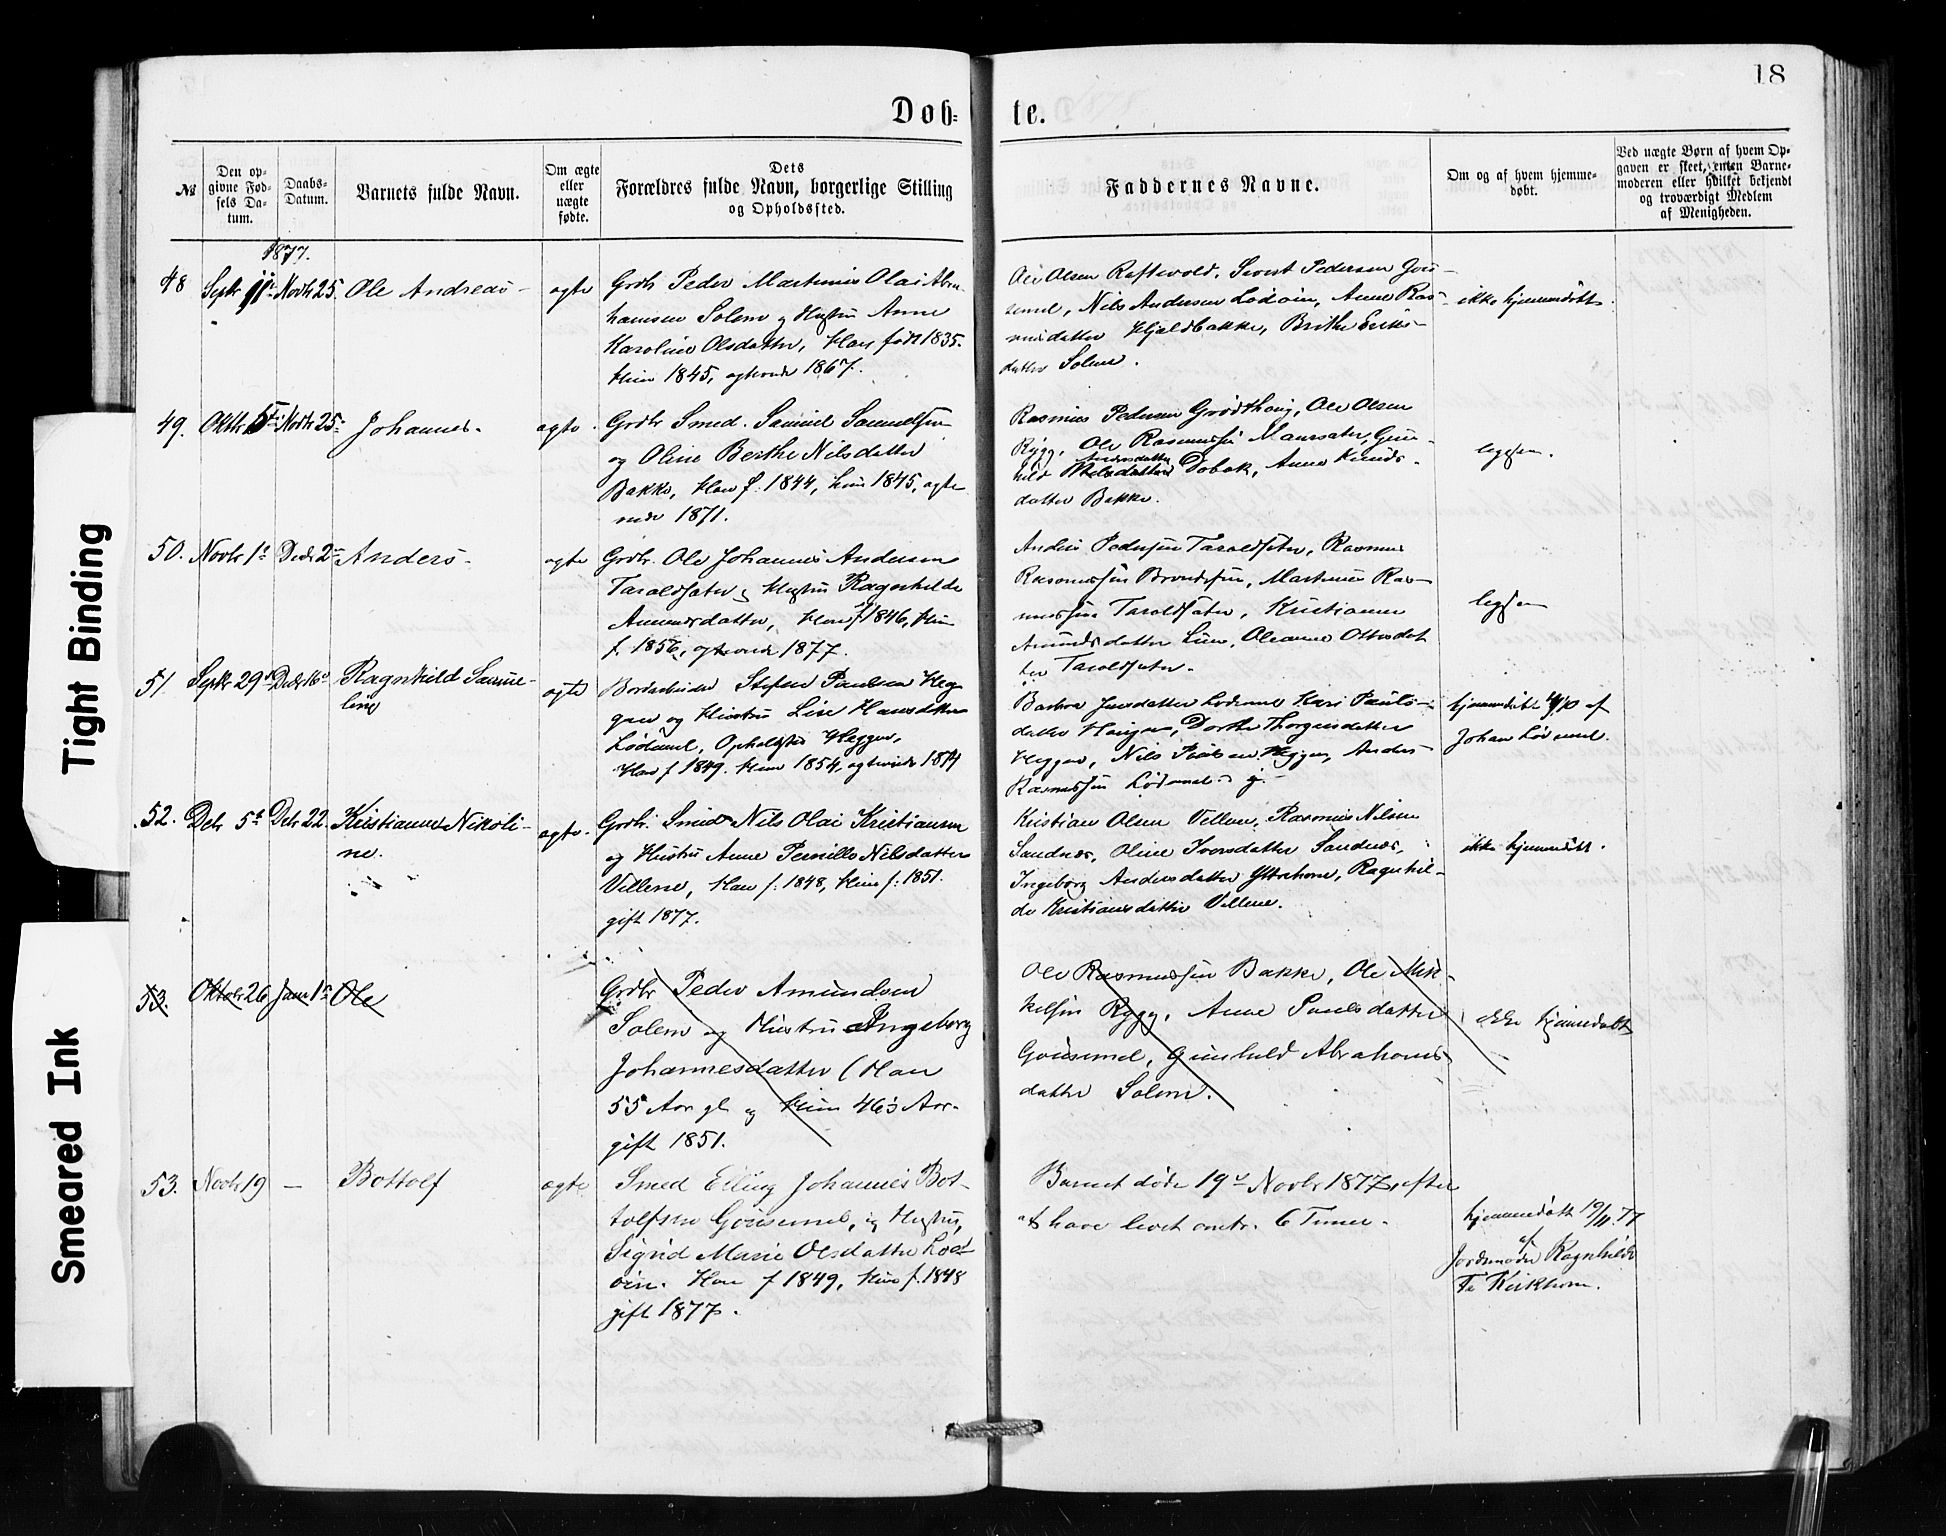 18
Døb- te.
№
Den op-
givne Fød-
sels Da-
tum.
Daabs-
Datum.
Barnets fulde Navn.
Om ægte
eller
uægte
fødte.
Dets
Forældres fulde Navn, borgerlige Stilling
og Opholdssted.
Faddernes Navne.
Om og af hvem hjemme-
døbt.
Ved uægte Børn af hvem Op-
gaven er skeet, enten Barne-
moderen eller hvilket bekjendt
og troværdigt Medlem
af Menigheden.
1877.
48 Septr 11 Novbr 25. Ole Andreas - ægte
Grdbr Peder Martinus Olai Abra-
hamsen Solem og Hustru Anne
Karoline Olsdatter, Han født 1835.
Hun 1845, ægteviede 1867.
Ole Olsen Raftevold, Sivert Pedersen Gou-
semel, Nils Andersen Lodøin, Anne Ras-
musdatter Hjeldbakke, Brithe Eriks-
datter Solem.
ikke hjemmedøbt.
49. Oktbr 5te Novbr 25 Johannes. ægte.
Grdbr Smed. Samuel Samuelsen
og Oline Berthe Nilsdatter
Bakke, Han f. 1844, hun 1845, ægte
viede 1871.
Rasmus Pedersen Grodthaug, Ole Olsen
Rygg, Ole Rasmussen Maursæter, Gun-
Andersdatter
hild Nilsdatter Dobak, Anne Knuds-
datter Bakke.
ligesen.
50. Novbr 1 Decbr 2 Anders - ægte
Grdbr. Ole Johannes Andersen
Taraldsæter og Hustru Ragnhilde
Amundsdatter, Han f 1846, Hun
f. 1856, ægteviede 1877.
Anders Pedersen Taraldsæter, Rasmus
Rasmussen Brændsæter, Martinus Ras-
mussen Taraldsæter, Kristianne
Amundsdatter Lien, Oleanne Ottesdat
ter Taraldsæter.
ligesen
51 Septr 29 Decbr 16 Ragnhild Samue-
line
ægte
Stefen Paulsen Heg
gen og Hustru Lise Hansdatter
Lødemel, Opholdssted Heggen,
Han f 1849. Hun 1854, ægteviede 1874
Barbro Jensdatter Lødemel Kari Pauls-
datter Haugen, Dorthe Thorgersdatter
Heggen, Nils Paulsen Heggen, Anders
Rasmussen Lødemel.
hjemmedøbt /10 af
Johan Lødemel.
52. Debr 5 Debr 22. Kristianne Nikoli-
ne.
ægte.
Grdbr. Smed Nils Olai Kristiansen
og Hustru Anne Pernille Nilsdatter
Vellene, Han f: 1848, Hun f: 1851.
gift 1877.
Kristian Olsen Vellene, Rasmus Nilsen
Sandnes, Oline Iversdatter Sandnes,
Ingeborg Andersdatter Yttrehorn, Ragnhil-
de Kristiansdatter Vellene.
ikke hjemmedøbt.
53. Oktobr 26 Janr 1 Ole
Grdbr Peder Amundsen
Solem og Hustru Ingeborg
Johannesdatter (Han
55 Aar gl og Hun 46 Aar.
gift 1851.
Ole Rasmussen Bakke, Ole Mik-
kelsen Rygg, Anne Paulsdatter
Gousemel, Gunhild Abrahams-
datter Solem.
ikke hjemmedøbt
53. Novbr 19 — Bottolf ægte
Smed Elling Johannes Bot-
tolfsen Gousemel, og Hustru,
Sigrid Marie Olsdatter Lod-
øin. Han f 1849, Hun f. 1848
gift 1877.
Barnet døde 19 Novbr 1877, efter
at have levet omtr. 6 Timer.
hjemmedøbt 19/11.77
af
Jordmoder Ragnhilde
Kirkhorn.
Tight Binding
Smeared Ink